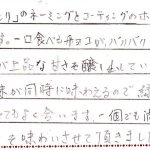 り」のネーミングとコーティングのホ
す。一口食べるとチョコが、パリパリ
が上品な甘さを醸し出してい
味が同時に味わえるので
ても良く合います。一個でも満
を味わいさせて頂きまし